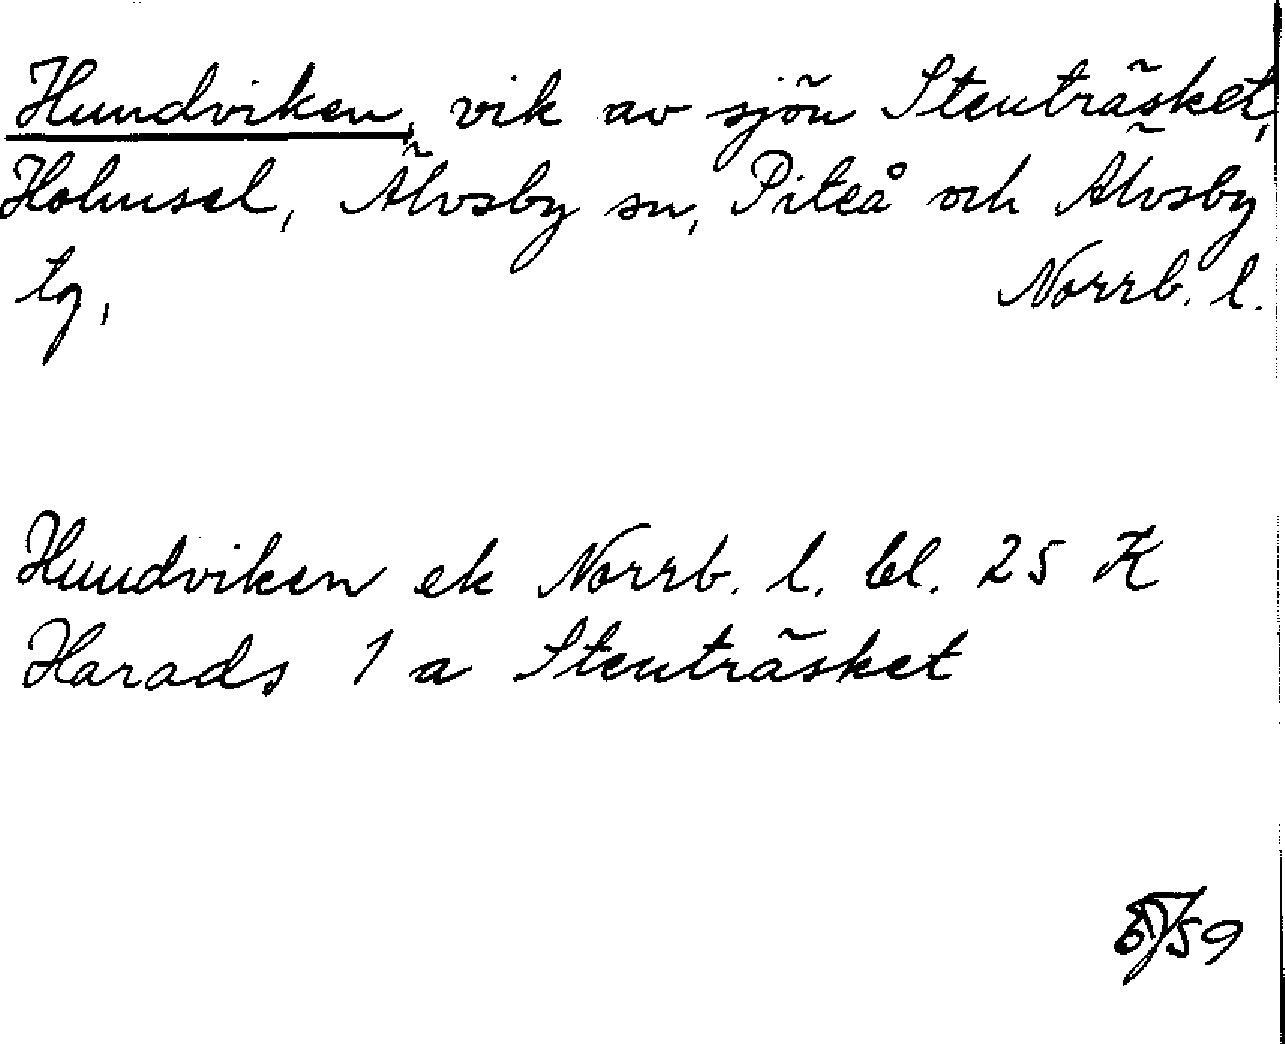 Hundviken, vik av sjön Stenträsket,
Holmsel, Älvsby sn, Piteå och Älvsby
tg, Norrb. l.
Hundviken ek Norrb. l. bl. 25 K
Harads 1 a Stenträsket
/59